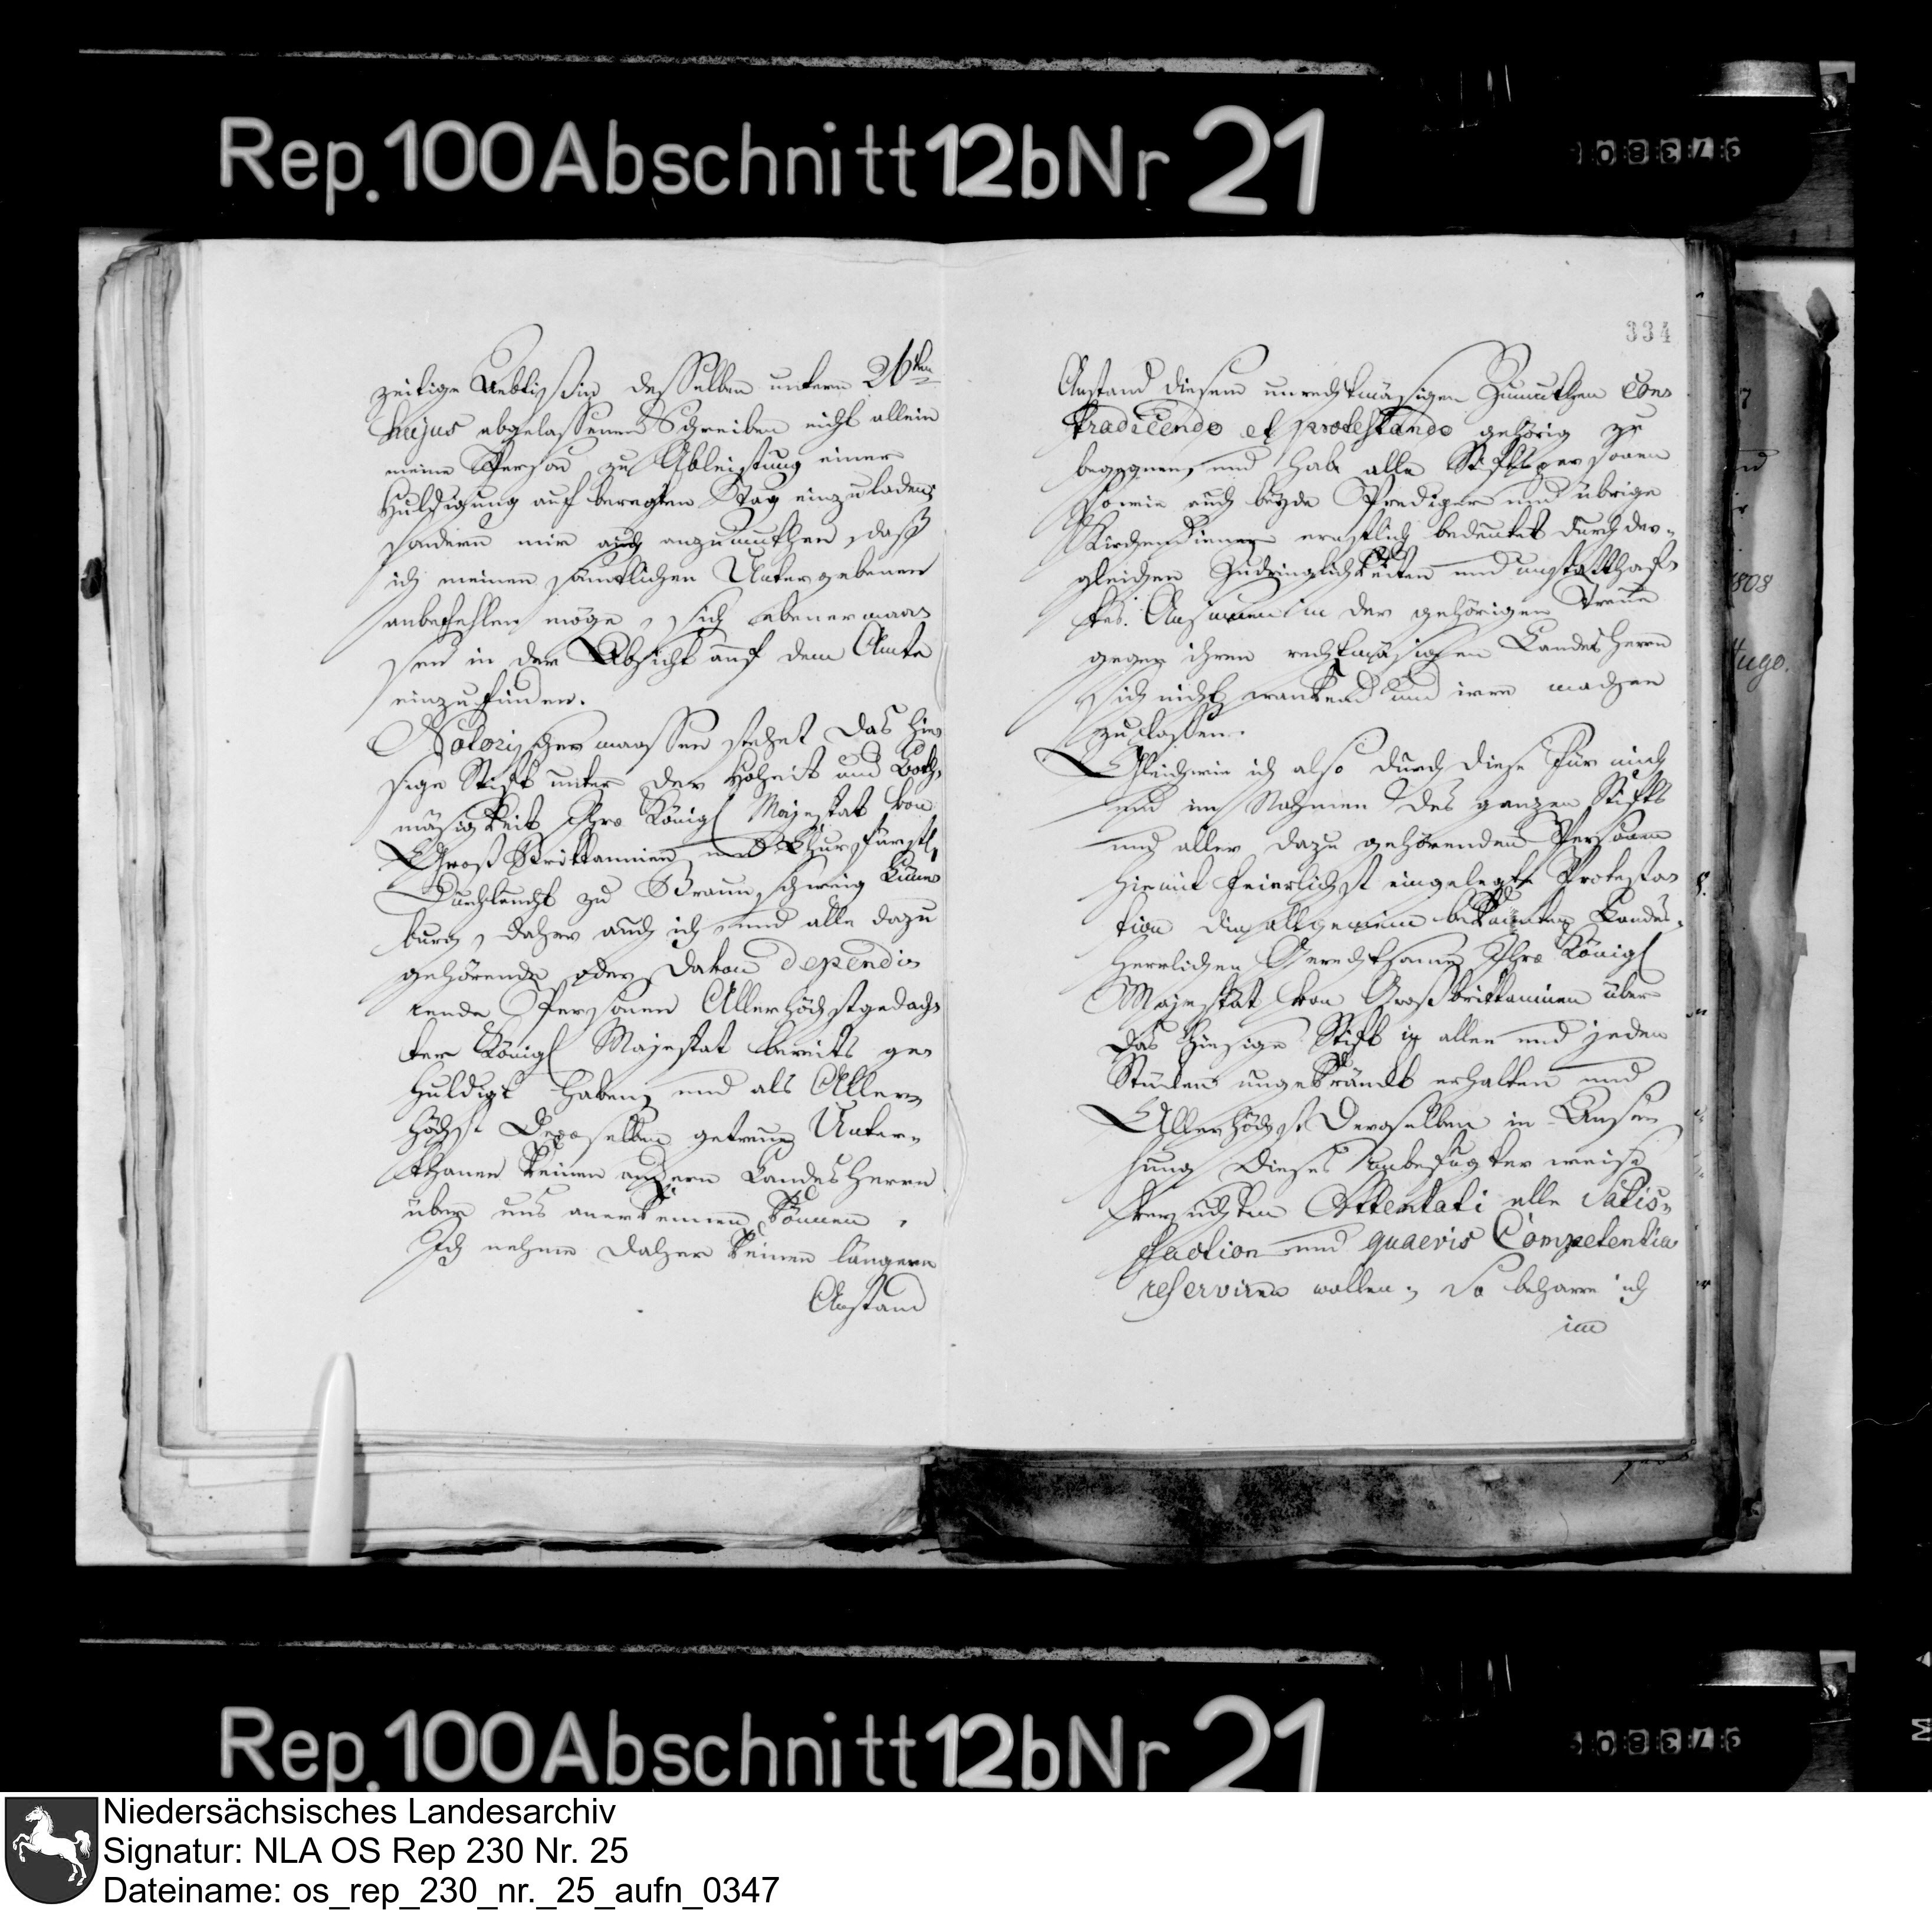 Rep. 100 Abschnitt 12b Nr 21
334
zeitige Aebtißin desselben unterm 26ten
hujus abgelassenen Schreiben nicht allein
meine Person zu Ableistung einer
Huldigung auf beregten Tag einzuladen;
sondern mir auch anzumuthen, daß
ich meinen sämtlichen Untergebenen
anbefehlen möge, sich ebenermaas
sen in der Absicht auf dem Amte
einzufinden.
Notorischermaassen stehet das hie
sige Stift unter der Hoheit und Both
mäsigkeit Ihro Königl Majestät von
Groß Brittannien und Churfürstl.
Durchlaucht zu Braunschweig Lüne
burg, daher auch ich und alle dazu
gehörende oder davon dependi
rende Personen Allerhöchstgedach
ter Königl Majestät bereits ge
huldigt haben, und als Aller
höchst Deroselben getreue Unter
thanen keinen andern Landesherrn
über uns anerkennen können.
Ich nehme daher keinen längern
Anstand
Anstand diesem unrechtmäsigen Zumuthen con
tradicendo et protestando gehörig zu
begegnen, und habe alle Stiftspersonen
sowie auch beyde Prediger und übrige
Kirchendiener ernstlich bedeutet durch der
gleichen Zudringlichkeiten und unstatthaf
tes Ansinnen in der gehörigen Treue
gegen ihren rechtmäsigen Landesherrn
sich nicht wankend und irre machen
zu lassen.
Gleichwie ich also durch diese für mich
und im Nahmen des ganzen Stifts
und aller dazu gehörenden Personen
hiemit feierlichst eingelegte Protesta
tion die allgemein bekannten Landes
herrlichen Gerechtsame Ihro Königl
Majestät von Großbrittannien über
das hiesige Stift in allen und jeden
Stücken ungekränkt erhalten und
Allerhöchst Deroselben in Anse
hung dieses unbefugter weise
versuchten Attentati alle Satis
faction und quaevis Competentia
reserviren wollen; So beharre ich
im
1808
Hugo.
Rep. 100 Abschnitt 12b Nr 21
Niedersächsisches Landesarchiv
Signatur: NLA OS Rep 230 Nr. 25
Dateiname: os_rep_230_nr._25_aufn_0347